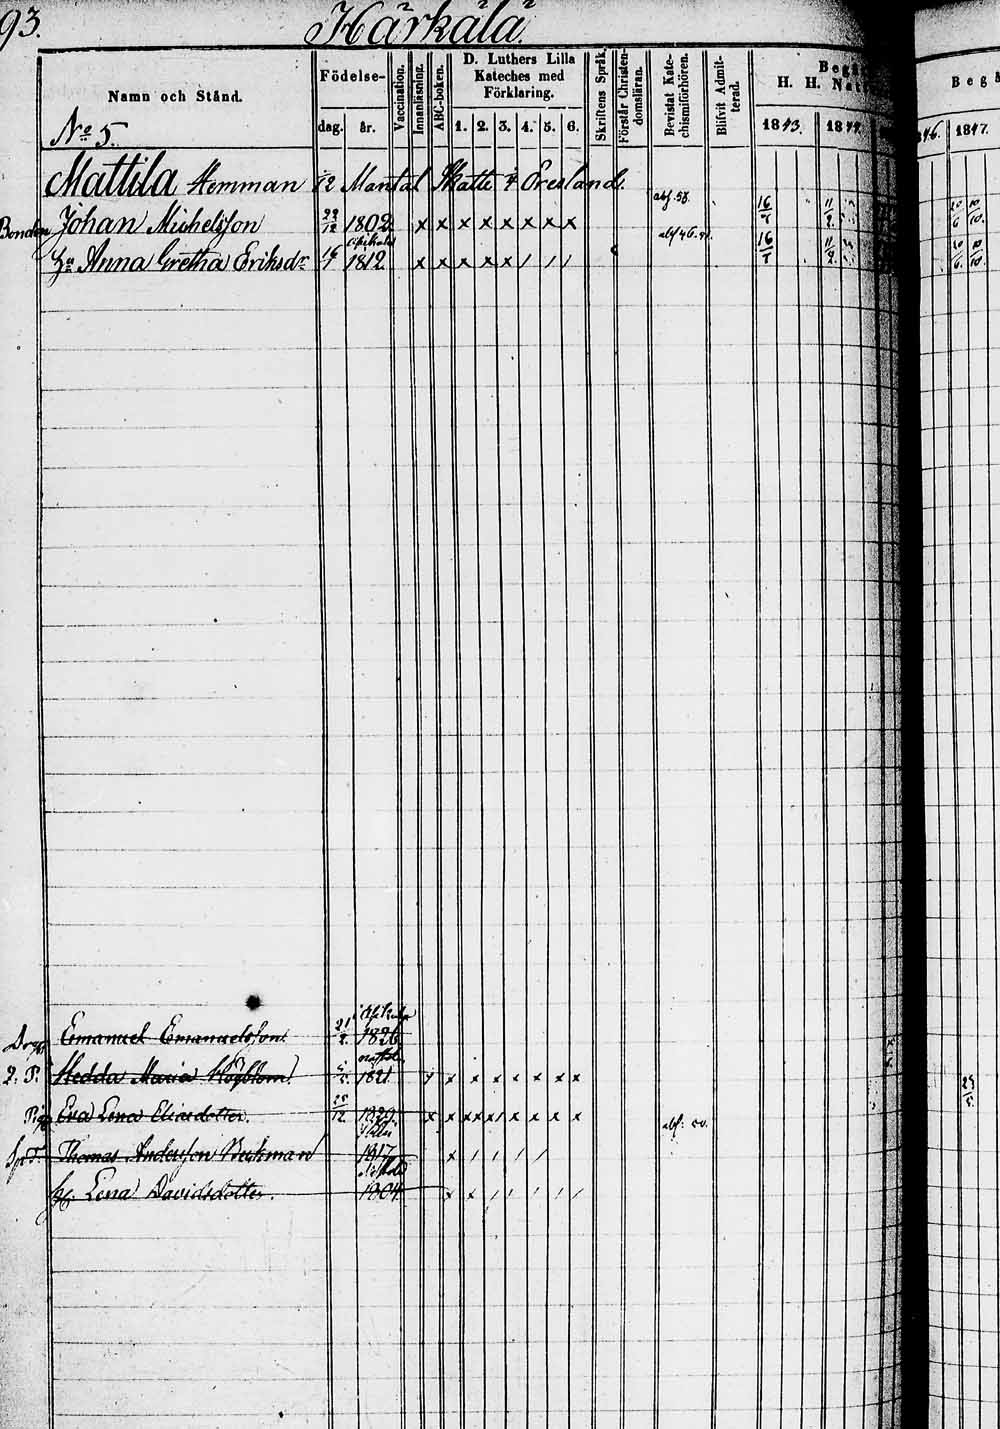 93.
Härkälä.
Namn och Stånd.
Födelse-
dag. år.
Vaccination.
Innanläsning.
ABC-boken.
D. Luthers Lilla
Kateches med
Förklaring.
1. 2. 3. 4. 5. 6.
Skriftens Språk.
Förstår Christen-
domsläran.
Bevistat Kate-
chismiförhören.
Blifvit Admit-
terad.
Begå
H. H. Natt
1843. 184
Begå
46. 1847.
No 5.
Mattila Hemman /12 Mantal Skatte 4 Öresland.
Bonden Johan Michelsson 22/12 1802 x x x x x x x x 16/7 11/2 10/6 10/10
Anna Gretha Eriksdr 1812 x x x x x / / / 16/7 11/2 10/6 10/10
Emanuel Emanuelsson 21/2 1826
2. P. Hedda Maria Högblom 1821 x x x x x x x
Eva Lena Eliasdotter. 25/12 1829 x x x x x x x x
Thomas Andersson Beckman 1817 x / / / /
Lena Davidsdotter. 1804 x x / / / / /